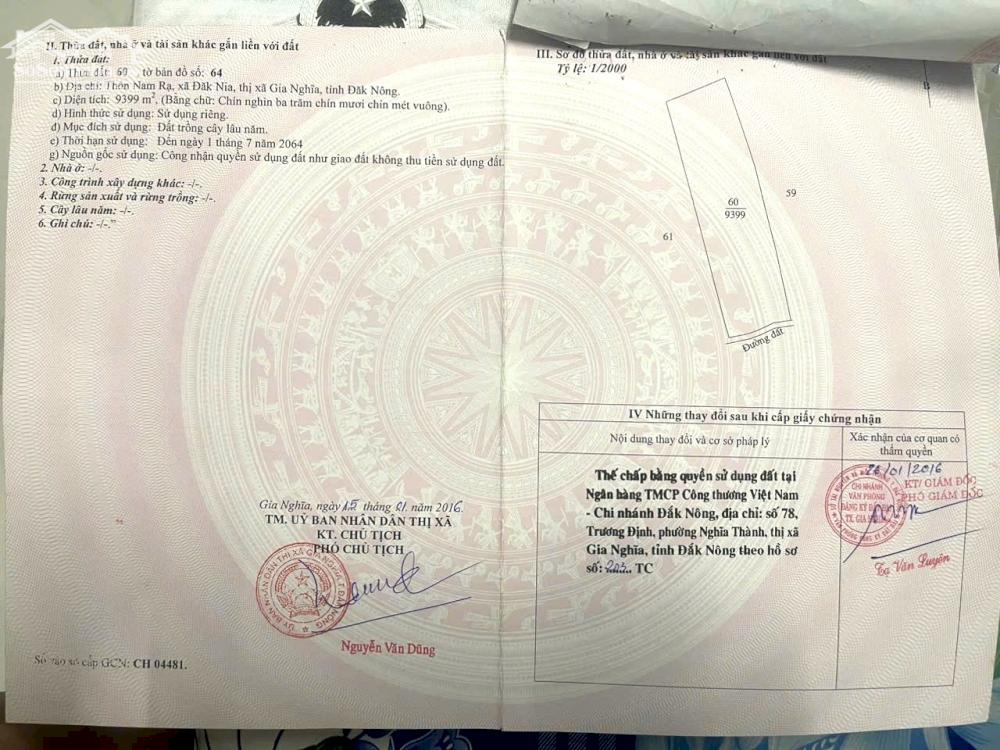 II. Thửa đất, nhà ở và tài sản khác gắn liền với đất
1. Thửa đất:
a) Thửa đất: 60 tờ bản đồ số: 64
b) Địa chỉ: Thôn Nam Rạ, xã Đăk Nia, thị xã Gia Nghĩa, tỉnh Đăk Nông.
c) Diện tích: 9399 m², (Bằng chữ: Chín nghìn ba trăm chín mươi chín mét vuông).
d) Hình thức sử dụng: Sử dụng riêng.
đ) Mục đích sử dụng: Đất trồng cây lâu năm.
e) Thời hạn sử dụng: Đến ngày 1 tháng 7 năm 2064
g) Nguồn gốc sử dụng: Công nhận quyền sử dụng đất như giao đất không thu tiền sử dụng đất.
2. Nhà ở: -/-.
3. Công trình xây dựng khác: -/-.
4. Rừng sản xuất và rừng trồng: -/-.
5. Cây lâu năm: -/-.
6. Ghi chú: -/-."
Gia Nghĩa, ngày 15 tháng 01 năm 2016
TM. UỶ BAN NHÂN DÂN THỊ XÃ
KT. CHỦ TỊCH
PHÓ CHỦ TỊCH
ỦY BAN NHÂN DÂN THỊ XÃ GIA NGHĨA T. ĐĂK NÔNG
Nguyễn Văn Dũng
Số vào sổ cấp GCN: CH 04481.
III. Sơ đồ thửa đất, nhà ở và tài sản khác gắn liền với đất
Tỷ lệ: 1/2000
B
60
9399
59
61
Đường đất
IV Những thay đổi sau khi cấp giấy chứng nhận
Nội dung thay đổi và cơ sở pháp lý
Xác nhận của cơ quan có
thẩm quyền
Thế chấp bằng quyền sử dụng đất tại
Ngân hàng TMCP Công thương Việt Nam
- Chi nhánh Đắk Nông, địa chỉ: số 78,
Trương Định, phường Nghĩa Thành, thị xã
Gia Nghĩa, tỉnh Đắk Nông theo hồ sơ
số: 203 TC
26/01/2016
KT/ GIÁM ĐỐC
PHÓ GIÁM ĐỐC
CHI NHÁNH
VĂN PHÒNG
ĐĂNG KÝ ĐẤT ĐAI
TX. GIA NGHĨA
Tạ Văn Luyện